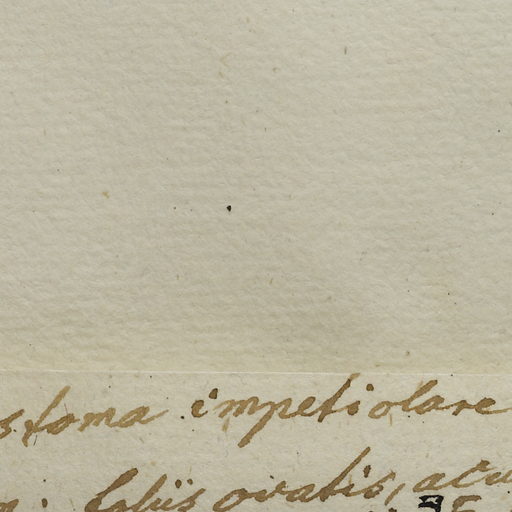 stoma impetiolare
foliis ovatis, acu